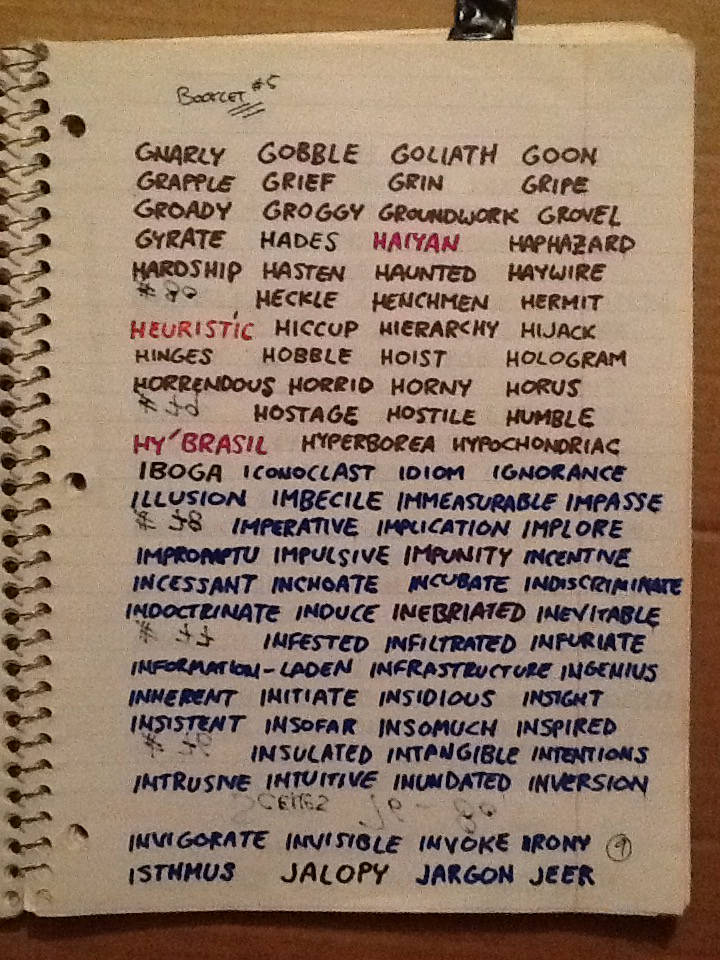 BOOKLET #5
GNARLY GOBBLE GOLIATH GOON
GRAPPLE GRIEF GRIN GRIPE
GROADY GROGGY GROUNDWORK GROVEL
GYRATE HADES HAIYAN HAPHAZARD
HARDSHIP HASTEN HAUNTED HAYWIRE
HECKLE HENCHMEN HERMIT
HEURISTIC HICCUP HIERARCHY HIJACK
HINGES HOBBLE HOIST HOLOGRAM
HORRENDOUS HORRID HORNY HORUS
HOSTAGE HOSTILE HUMBLE
HY'BRASIL HYPERBOREA HYPOCHONDRIAC
IBOGA ICONOCLAST IDIOM IGNORANCE
ILLUSION IMBECILE IMMEASURABLE IMPASSE
IMPERATIVE IMPLICATION IMPLORE
IMPROMPTU IMPULSIVE IMPUNITY INCENTIVE
INCESSANT INCHOATE INCUBATE INDISCRIMINATE
INDOCTRINATE INDUCE INEBRIATED INEVITABLE
INFESTED INFILTRATED INFURIATE
INFORMATION-LADEN INFRASTRUCTURE INGENIUS
INHERENT INITIATE INSIDIOUS INSIGHT
INSISTENT INSOFAR INSOMUCH INSPIRED
INSULATED INTANGIBLE INTENTIONS
INTRUSIVE INTUITIVE INUNDATED INVERSION
INVIGORATE INVISIBLE INVOKE IRONY 9
ISTHMUS JALOPY JARGON JEER